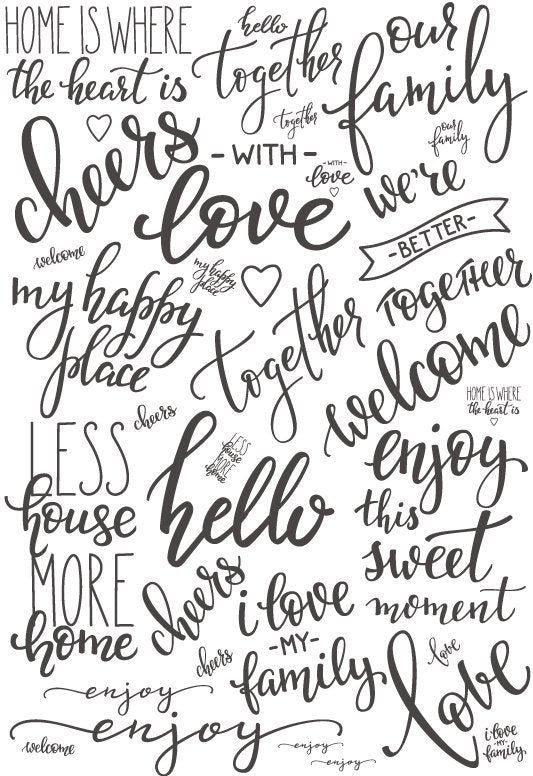 HOME IS WHERE
the heart is
hello
together
our
family
together
our
family
cheers
- WITH -
love
- WITH -
love
we're
- BETTER -
TOGETHER
welcome
my happy
place
my happy
place
together
welcome
HOME IS WHERE
the heart is
cheers
LESS
house
MORE
home
LESS
house
MORE
home
hello
enjoy
this
sweet
moment
cheers
i love
- MY -
family
cheers
love
love
enjoy
enjoy
welcome
enjoy
enjoy
i love
- MY -
family